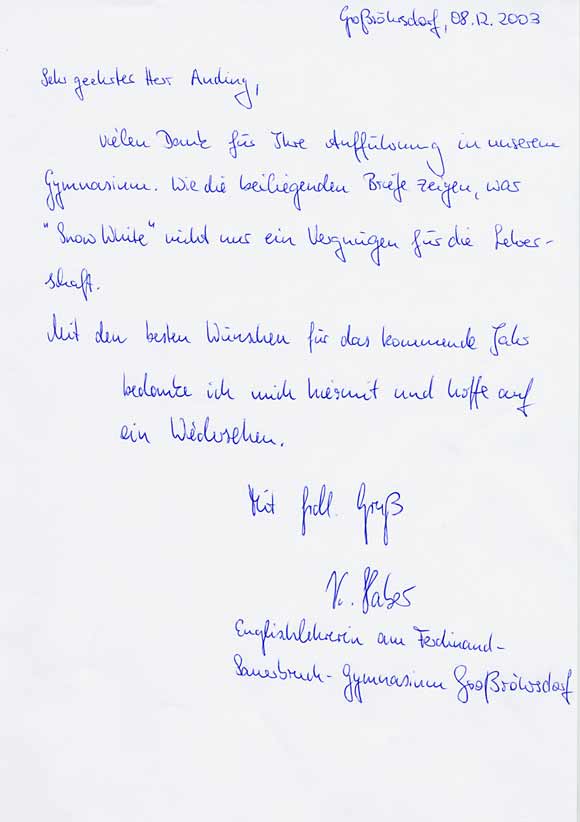 Großröhrsdorf, 08.12.2003
Sehr geehrter Herr Anding,
vielen Dank für Ihre Aufführung in unserem
Gymnasium. Wie die beiliegenden Briefe zeigen, war
"Snow White" nicht nur ein Vergnügen für die Lehrer-
schaft.
Mit den besten Wünschen für das kommende Jahr
bedanke ich mich hiermit und hoffe auf
ein Wiedersehen.
Mit frdl. Gruß
K. Haber
Englischlehrerin am Ferdinand-
Sauerbruch-Gymnasium Großröhrsdorf